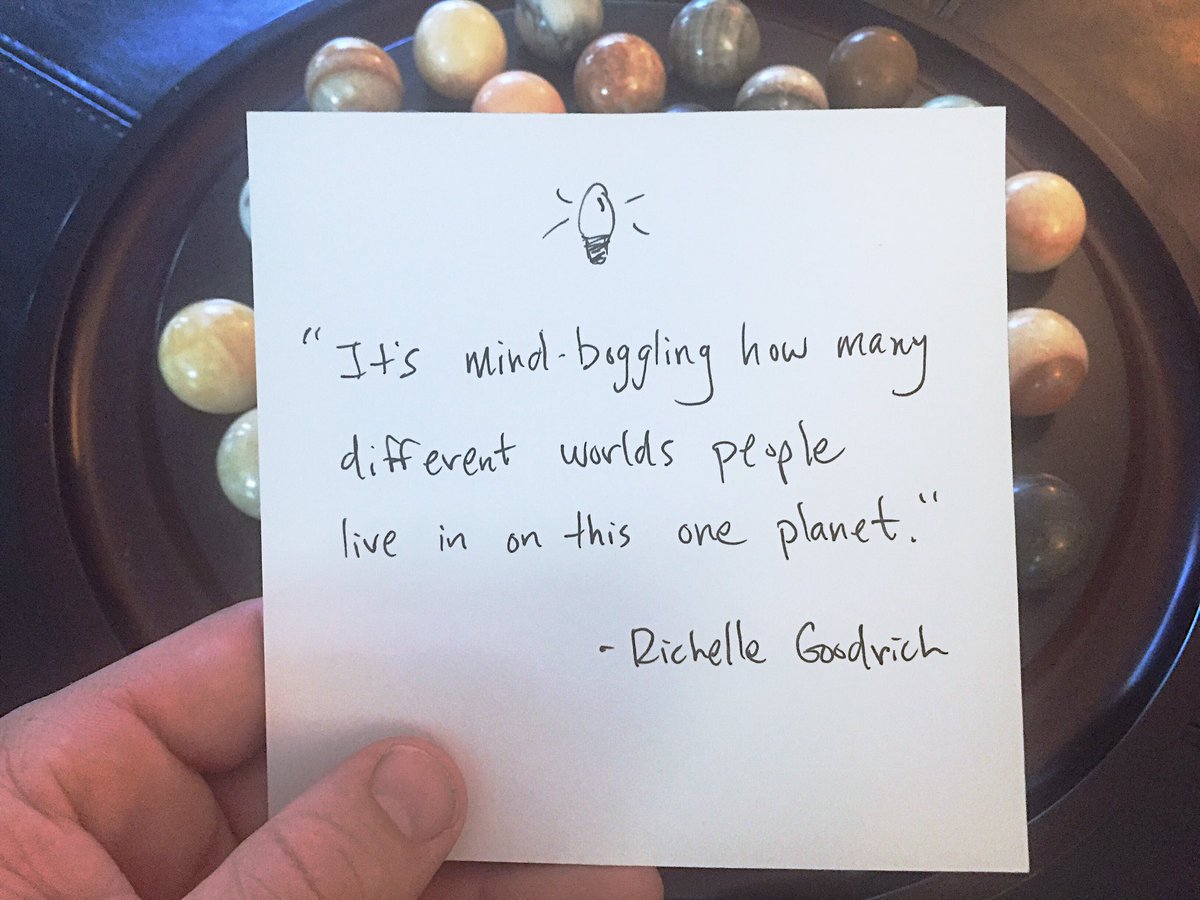 "It's mind-boggling how many
different worlds people
live in on this one planet."
- Richelle Goodrich